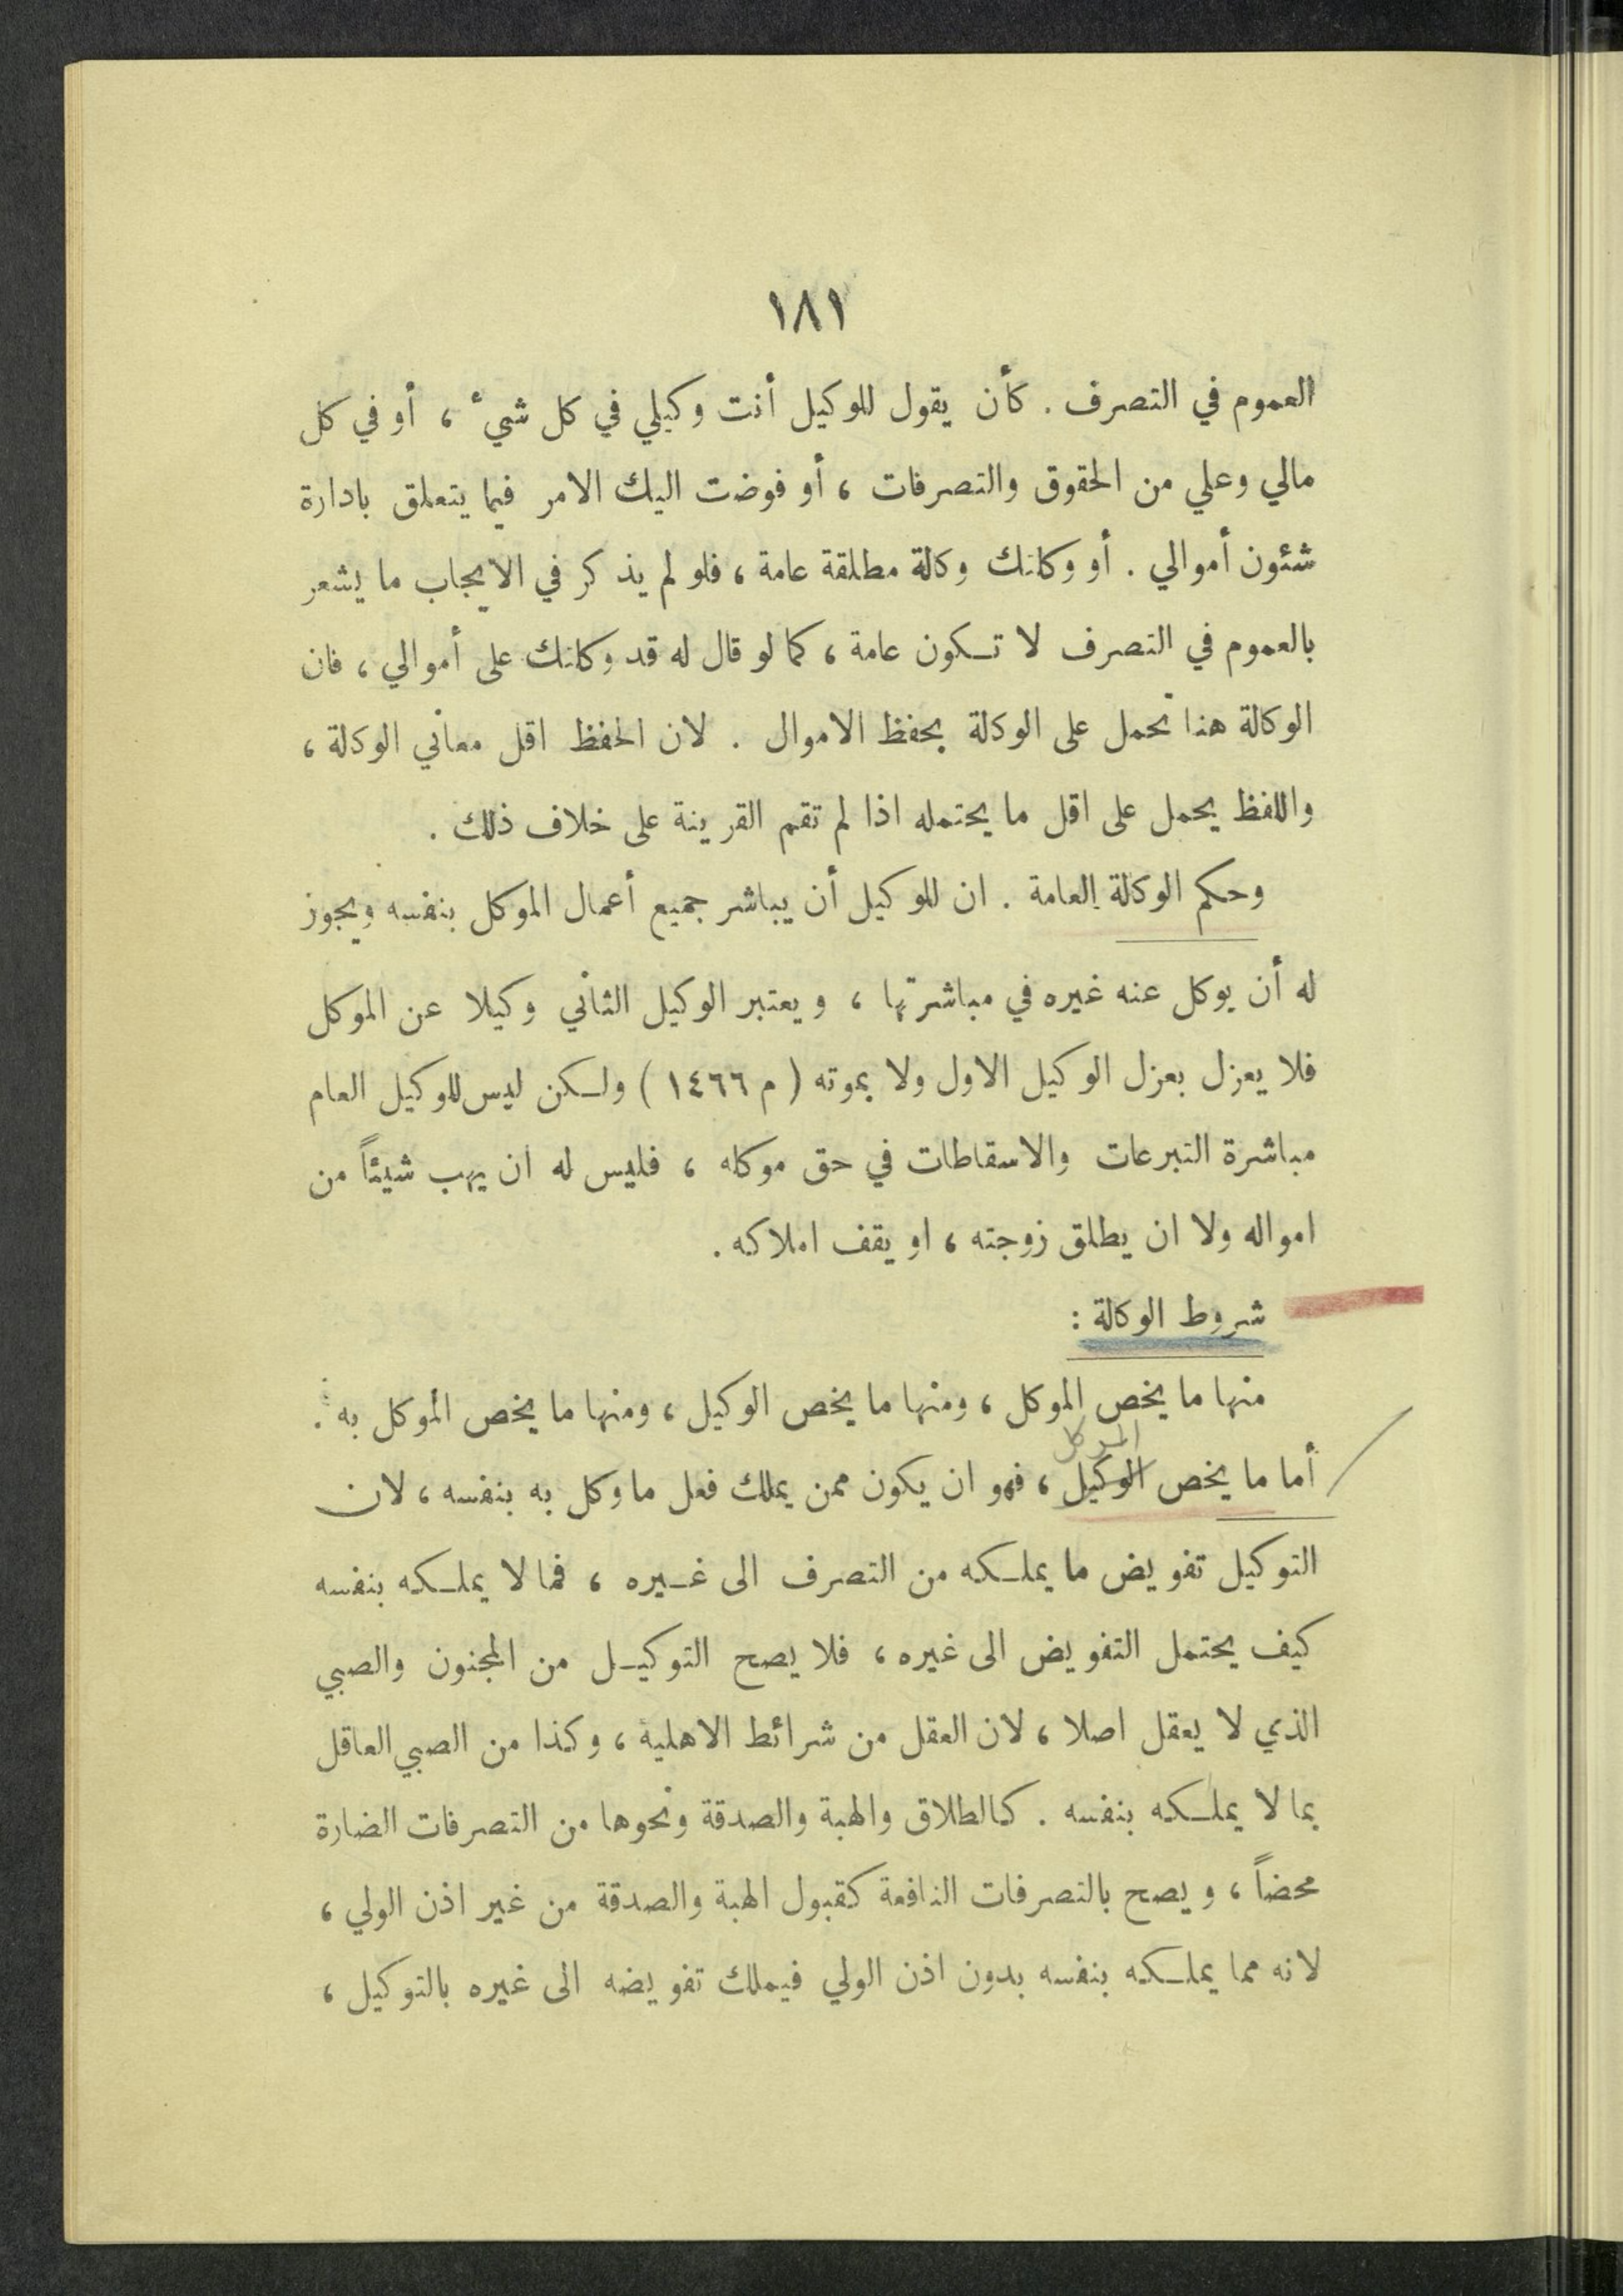 ١٨١
العموم في التصرف . كأن يقول للوكيل أنت وكيلي في كل شيء ، أو في كل
مالي وعلي من الحقوق والتصرفات ، أو فوضت اليك الامر فيما يتعلق بادارة
شئون أموالي . أو وكلتك وكالة مطلقة عامة ، فلو لم يذكر في الايجاب ما يشعر
بالعموم في التصرف لا تكون عامة ، كما لو قال له قد وكلتك على أموالي ، فان
الوكالة هنا تحمل على الوكالة بحفظ الاموال . لان الحفظ اقل معاني الوكالة ،
واللفظ يحمل على اقل ما يحتمله اذا لم تقم القرينة على خلاف ذلك .
وحكم الوكالة العامة . ان للوكيل أن يباشر جميع أعمال الموكل بنفسه ويجوز
له أن يوكل عنه غيره في مباشرتها ، ويعتبر الوكيل الثاني وكيلا عن الموكل
فلا يعزل بعزل الوكيل الاول ولا بموته ( م ١٤٦٦ ) ولكن ليس للوكيل العام
مباشرة التبرعات والاسقاطات في حق موكله ، فليس له ان يهب شيئاً من
امواله ولا ان يطلق زوجته ، او يقف املاكه .
شروط الوكالة :
منها ما يخص الموكل ، ومنها ما يخص الوكيل ، ومنها ما يخص الموكل به .
الموكل
أما ما يخص الوكيل ، فهو ان يكون ممن يملك فعل ما وكل به بنفسه ، لان
التوكيل تفويض ما يملكه من التصرف الى غيره ، فما لا يملكه بنفسه
كيف يحتمل التفويض الى غيره ، فلا يصح التوكيل من المجنون والصبي
الذي لا يعقل اصلا ، لان العقل من شرائط الاهلية ، وكذا من الصبي العاقل
بما لا يملكه بنفسه . كالطلاق والهبة والصدقة ونحوها من التصرفات الضارة
محضاً ، ويصح بالتصرفات النافعة كقبول الهبة والصدقة من غير اذن الولي ،
لانه مما يملكه بنفسه بدون اذن الولي فيملك تفويضه الى غيره بالتوكيل ،